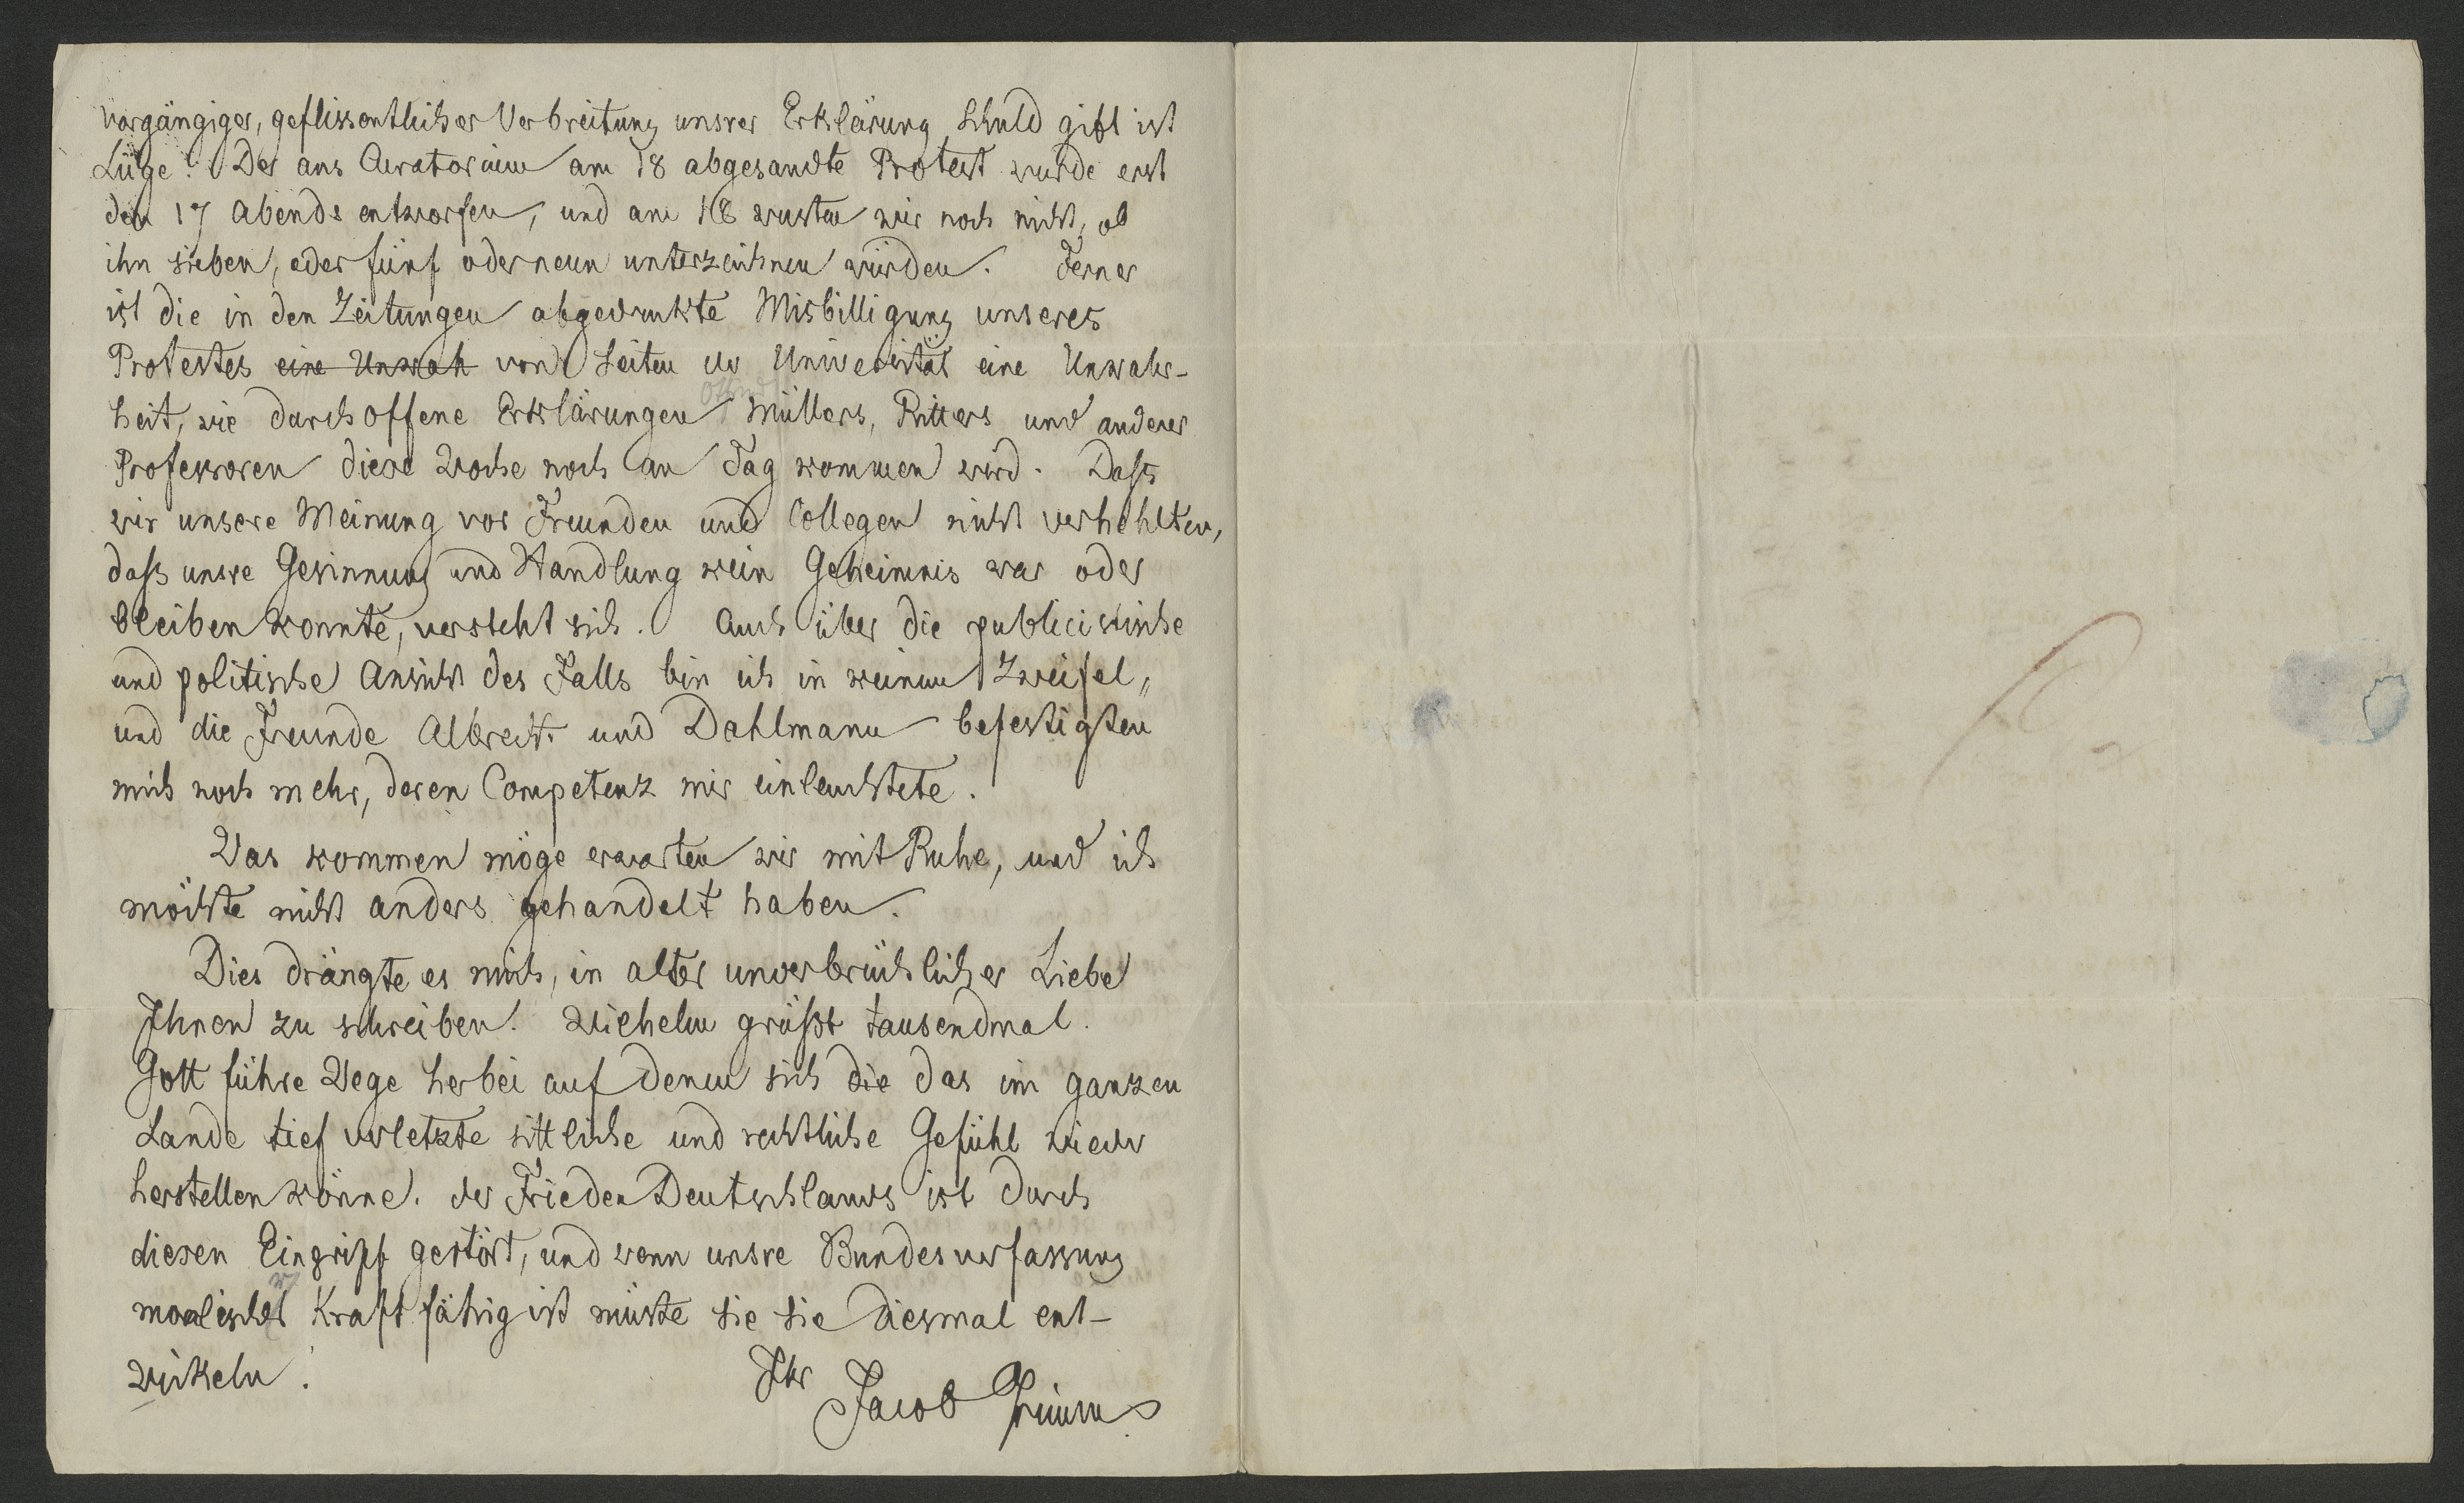 vorgängiger, geflissentlicher Verbreitung unsrer Erklärung Schuld gibt ist
Lüge. Der ans Curatorium am 18 abgesandte Protest wurde erst
den 17 Abends entworfen, und am 18 wusten wir noch nicht, ob
ihn sieben, oder fünf oder neun unterzeichnen würden. Ferner
ist die in den Zeitungen abgedruckte Misbilligung unseres
Protestes eine Unwah von Seiten der Universität eine Unwahr-
heit, wie durch offene Erklärungen Otfried Müllers, Ritters und anderer
Professoren diese Woche noch an Tag kommen wird. Daſs
wir unsere Meinung vor Freunden und Collegen nicht verhehlten,
daſs unsre Gesinnung und Handlung kein Geheimnis war oder
bleiben konnte, versteht sich. Auch über die publicistische
und politische Ansicht des Falls bin ich in keinem Zweifel,
und die Freunde Albrecht und Dahlmann befestigten
mich noch mehr, deren Competenz mir einleuchtete.
Was kommen möge erwarten wir mit Ruhe, und ich
möchte nicht anders gehandelt haben.
Dies drängte es mich, in alter unverbrüchlicher Liebe
Ihnen zu schreiben. Wilhelm grüßt tausendmal.
Gott führe Wege herbei auf denen sich die das im ganzen
Lande tief verletzte sittliche und rechtliche Gefühl wieder
herstellen könne. der Frieden Deutschlands ist durch
diesen Eingriff gestört, und wenn unsre Bundesverfassung
moralischer Kraft fähig ist müste sie sie diesmal ent-
wickeln.
Ihr
Jacob Grimm